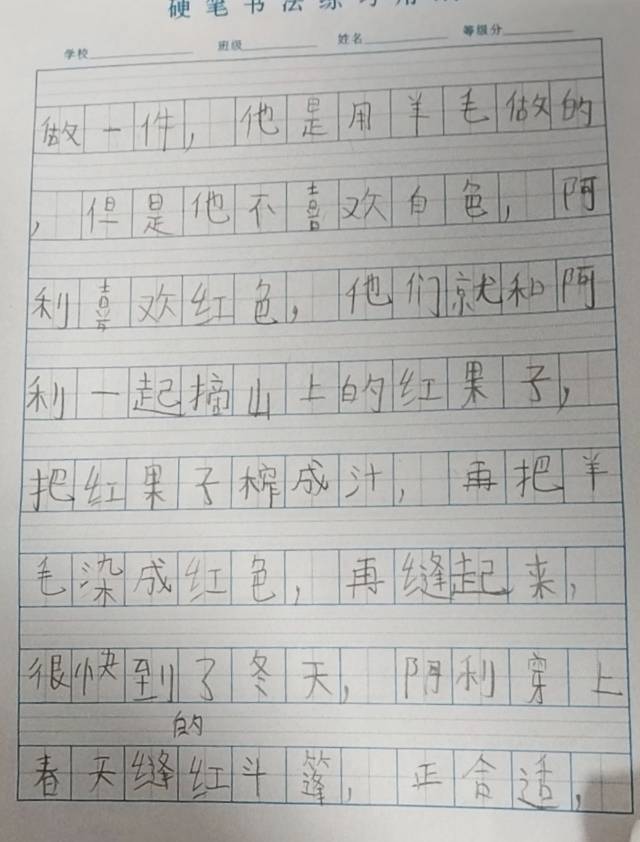 硬笔书法练习用纸
学校 班级 姓名 等级分
做一件，他是用羊毛做的
，但是他不喜欢白色，阿
利喜欢红色，他们就和阿
利一起摘山上的红果子，
把红果子榨成汁，再把羊
毛染成红色，再缝起来，
很快到了冬天，阿利穿上
的
春天缝红斗篷，正合适，